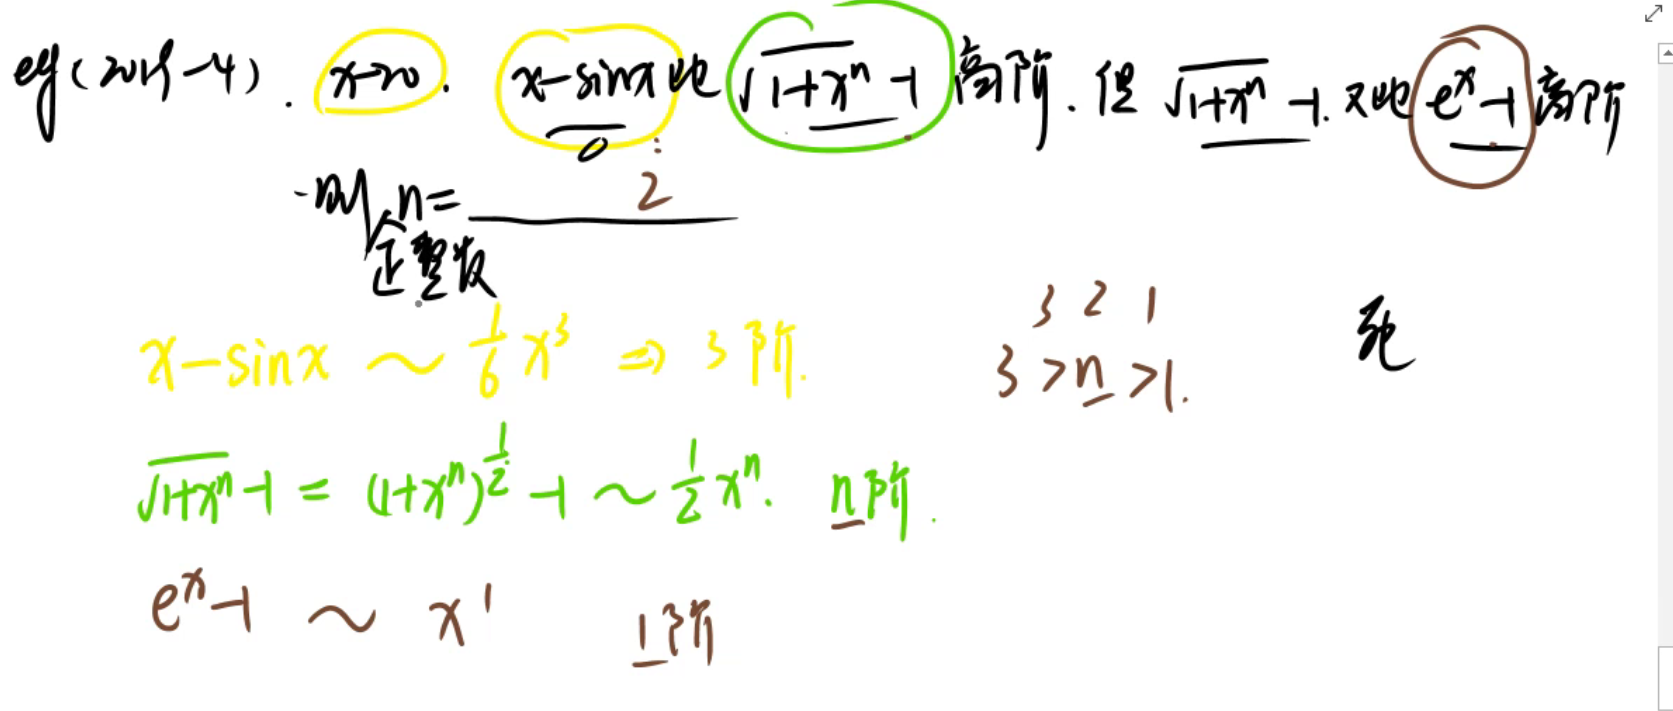 eg(2019-4). x→0. x-sinx比√(1+xⁿ) -1高阶.但√(1+xⁿ) -1.又比eˣ-1高阶
0
则 n= 2
正整数
3 2 1
x-sinx ~ 1/6 x³ ⇒ 3阶. 3>n>1.
√(1+xⁿ) -1 = (1+xⁿ)^(1/2) -1 ~ 1/2 xⁿ. n阶.
eˣ-1 ~ x¹ 1阶